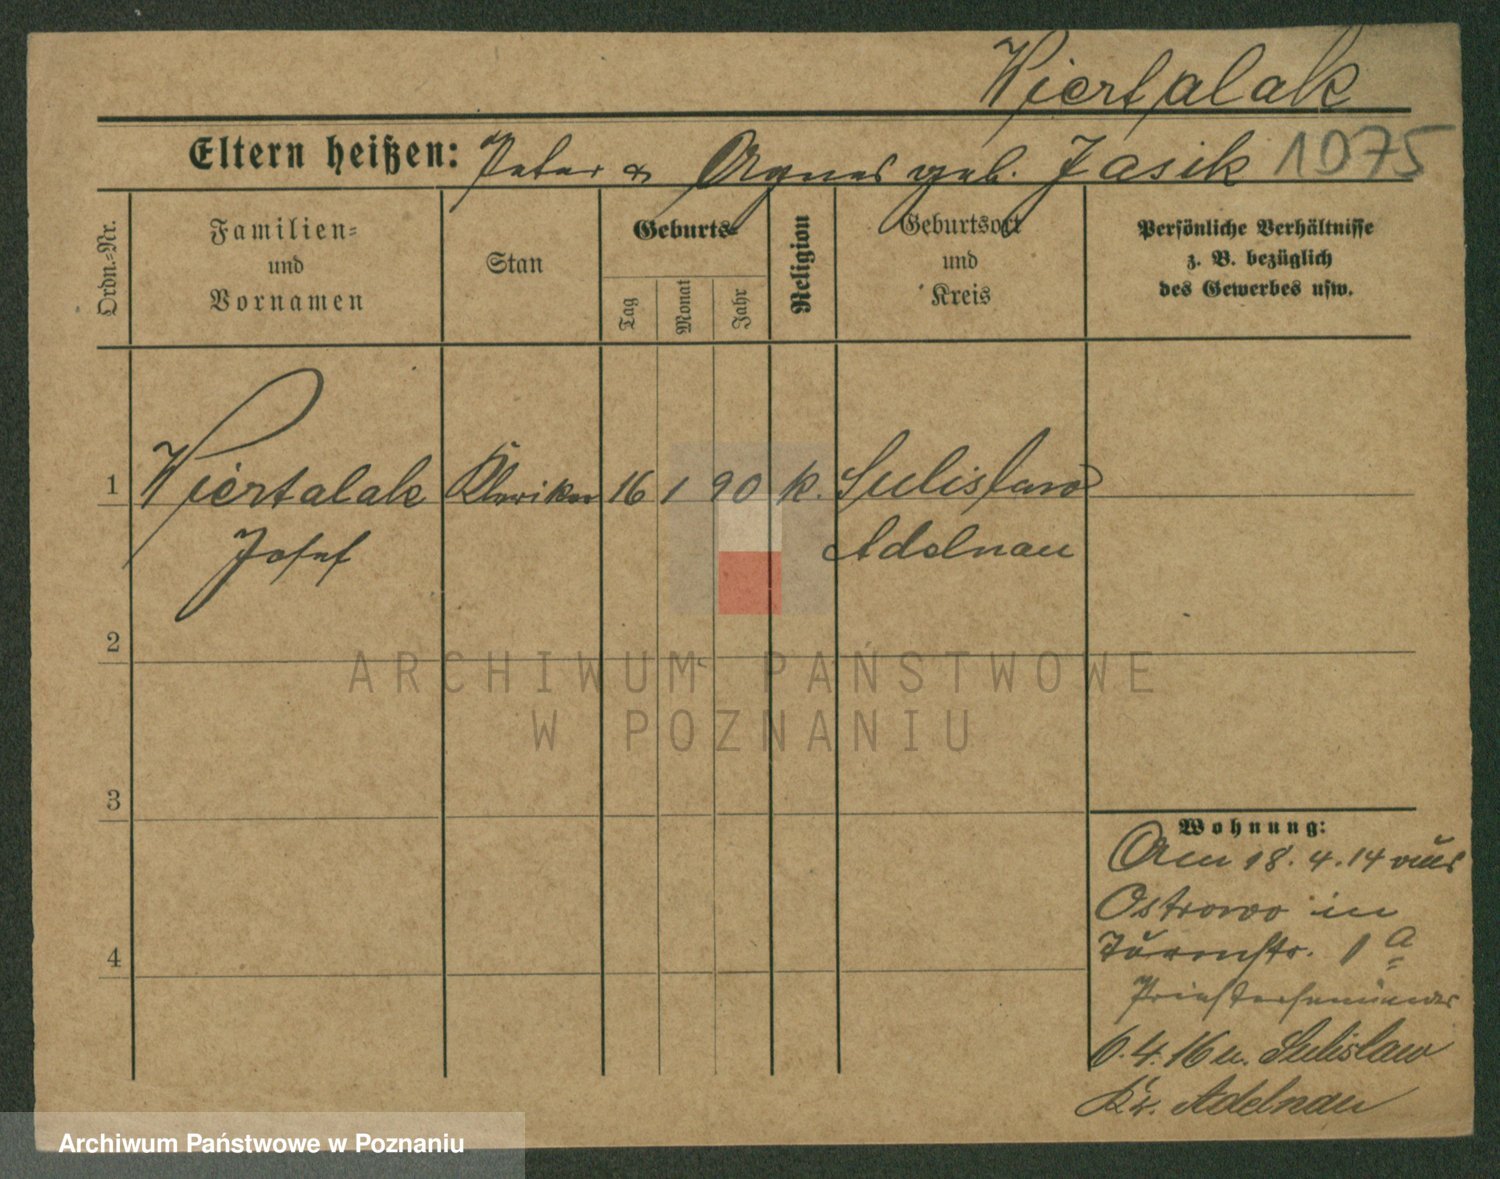 Wiertalak
Eltern heißen: Peter & Agnes geb. Jasik 1075
Ordn.-Nr.
Familien-
und
Vornamen
Stan
Geburts-
Tag
Monat
Jahr
Religion
Geburtsort
und
Kreis
Persönliche Verhältnisse
z. B. bezüglich
des Gewerbes usw.
1 Wiertalak Kleriker 16 1 90 k. Sulislaw
Josef Adelnau
2
ARCHIWUM PAŃSTWOWE
W POZNANIU
3
4
Wohnung:
Am 18. 4. 14 aus
Ostrowo in
Turmstr. 1 a
Priesterseminar
6. 4. 16 n. Sulislaw
Kr. Adelnau
Archiwum Państwowe w Poznaniu